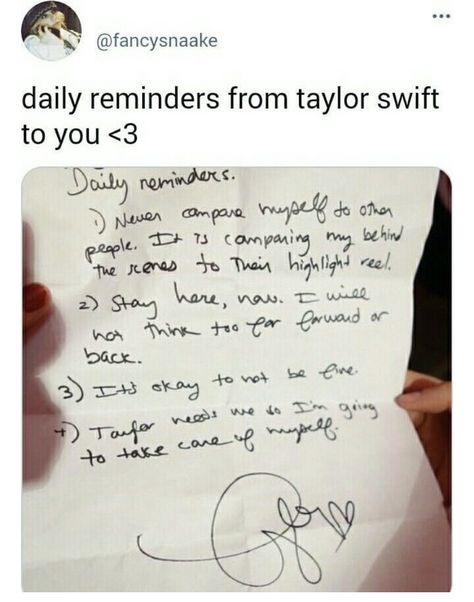 @fancysnaake
daily reminders from taylor swift
to you <3
Daily reminders.
1) Never compare myself to other
people. It is comparing my behind
the scenes to their highlight reel.
2) Stay here, now. I will
not think too far forward or
back.
3) It's okay to not be fine.
4) Taylor needs me so I'm going
to take care of myself.